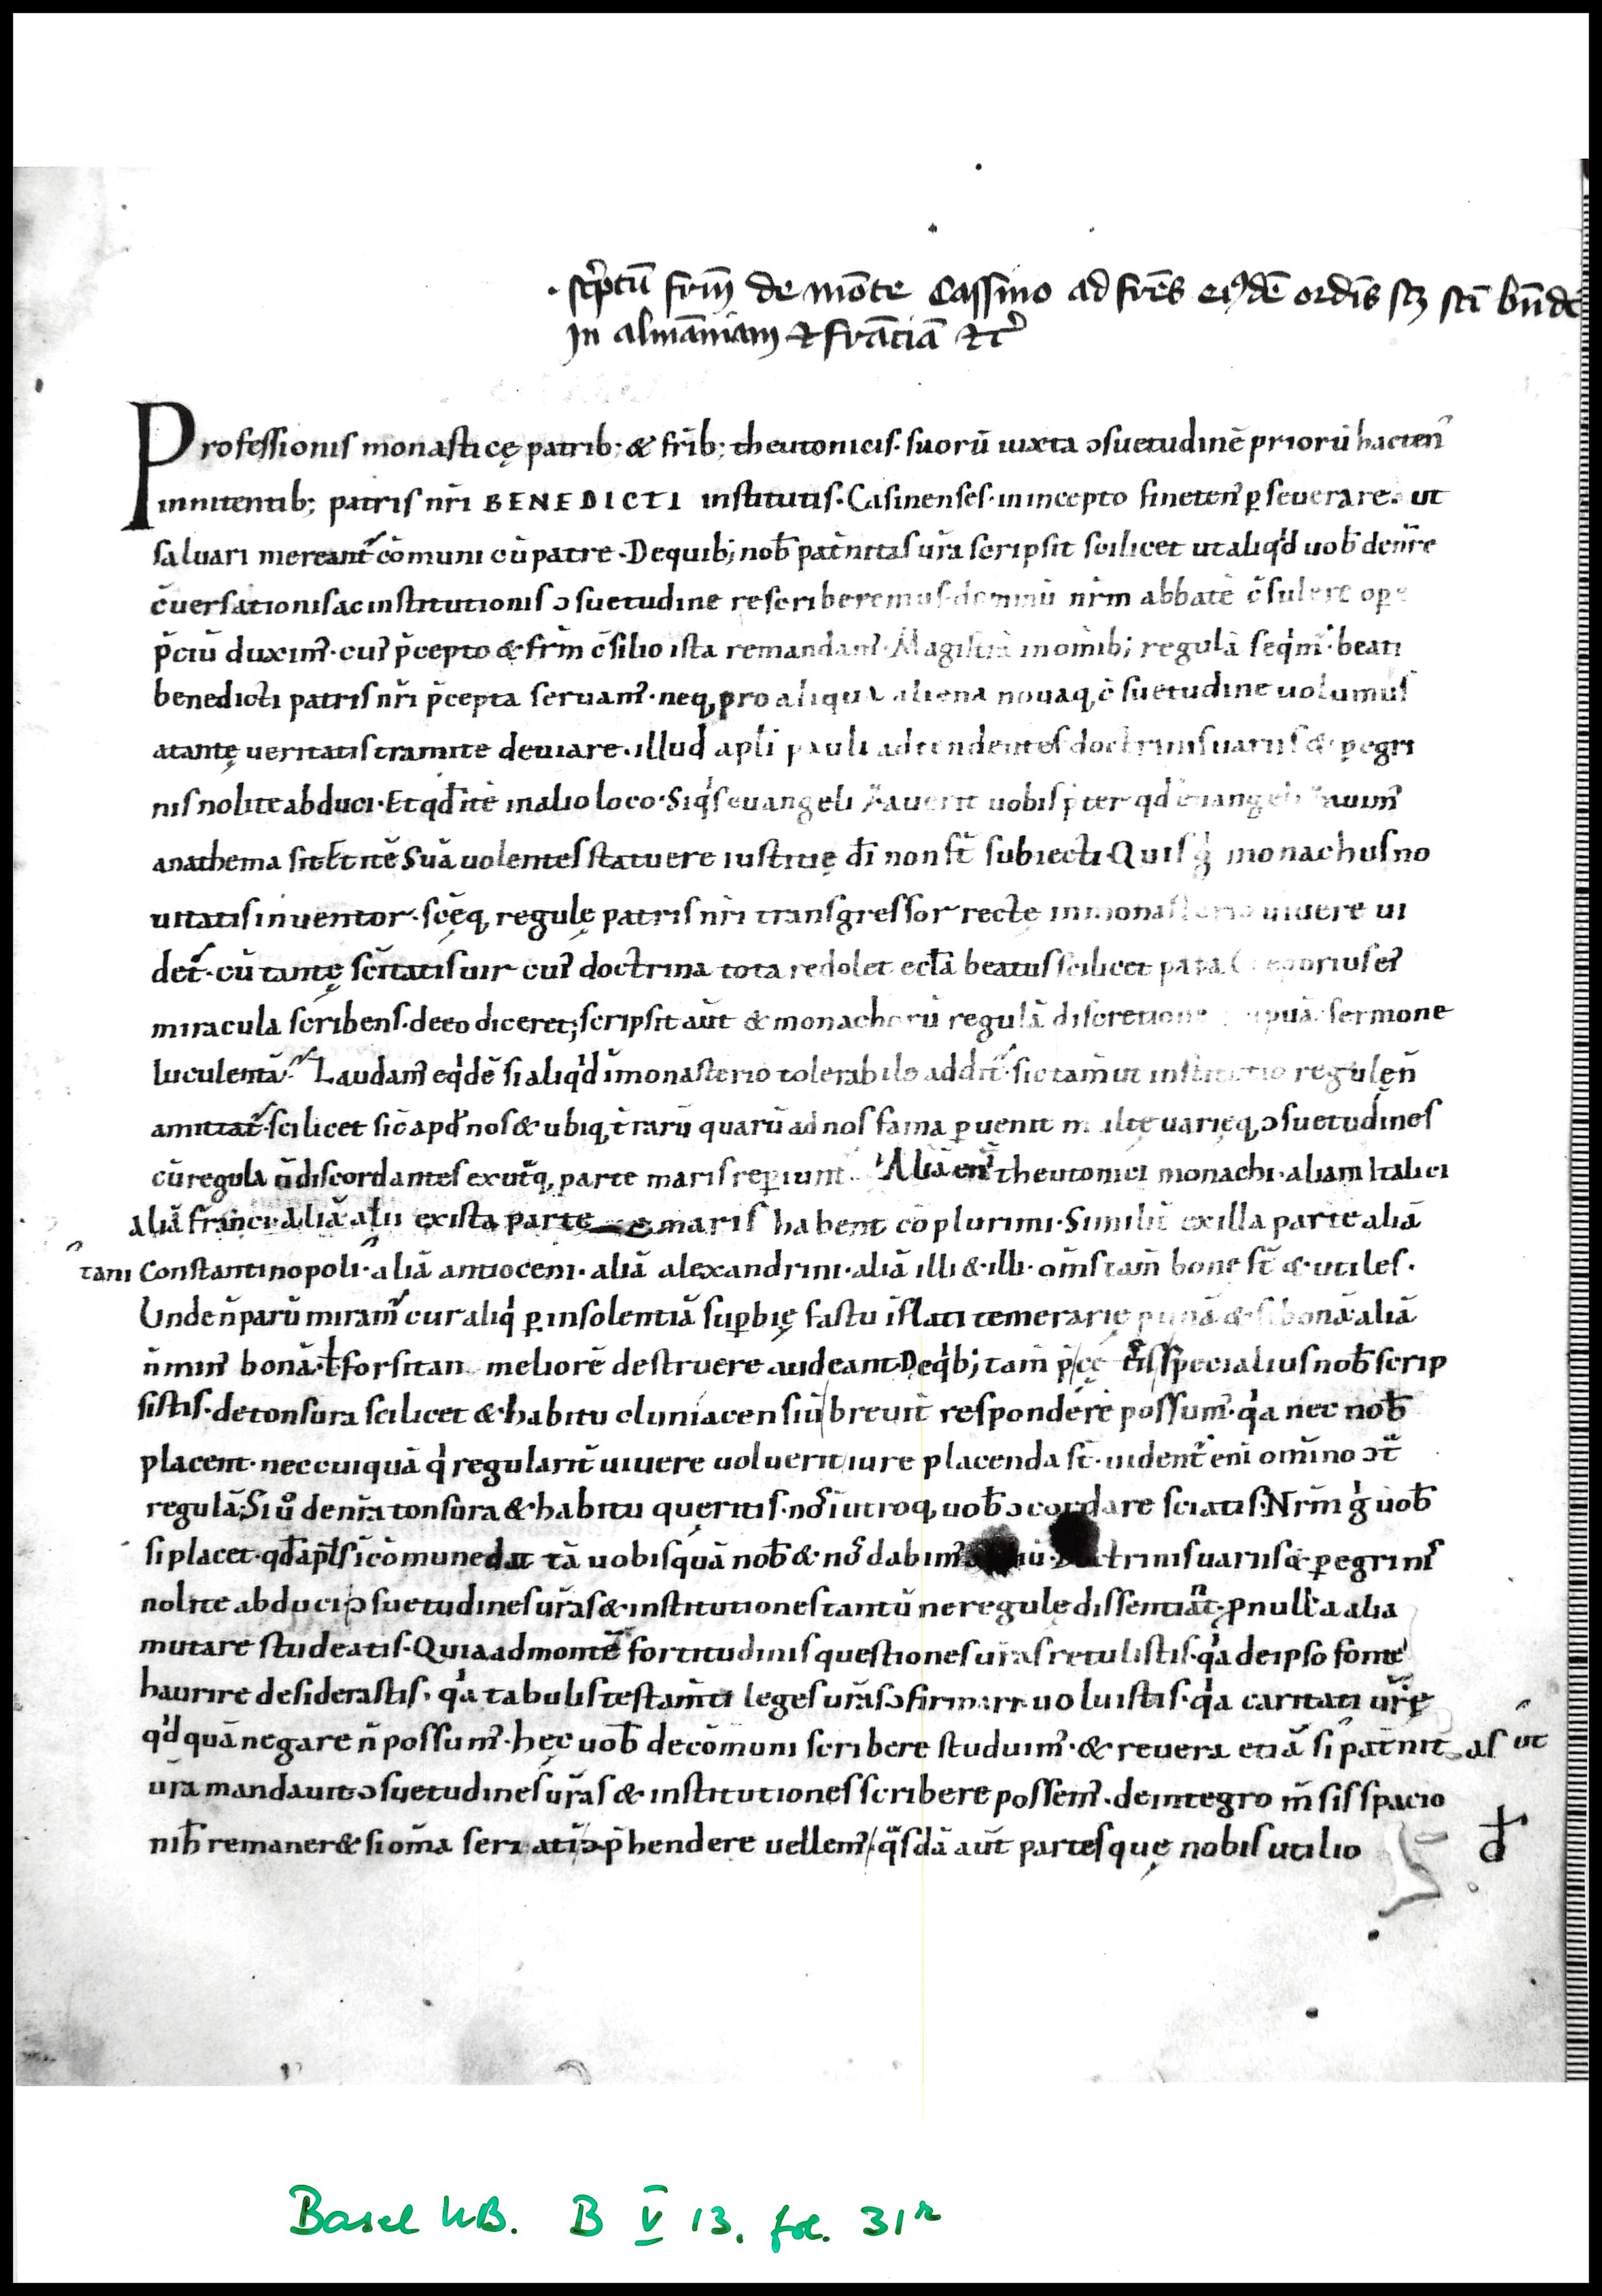 · sc̾ptū fr̄m̄ de mōte Cassino ad fr̄es eiꝰdē ordīs scꝫ sc̄i bn̄dc̄
In almāniam ⁊ frāciā ⁊c̾
Professionis monasticę patrib; & fr̄ib; theutonicis· suorū iuxta ↄsuetudinē priorū hacten᾽
innitentib; patris nr̄i BENEDICTI institutis· Casinenses· in incepto fineten᾽ ꝑseverare· ut
saluari mereant᷑ cōmuni cū patre· De quib; nob̄ pat̄nitas ur̄a scripsit scilicet ut aliq͛d uob̄ de nr̄e
c̄uersationis ac institutionis ↄsuetudine rescriberemus· domnū nr̄m abbatē c̄sulere ope
p̄ciū duxim᾽· cui᾽ p̄cepto & fr̄m c̄silio ista remandam᾽· Magistrā in om̄ib; regulā seq͛m᾽· beati
benedicti patris nr̄i p̄cepta seruam᾽· neq, pro aliqua aliena nouaq, c̄suetudine uolumus
a tantę veritatis tramite deviare· illud apl̄i pauli adtendentes doctrinis uariis & ꝑegri
nis nolite abduci· Et qd̄ itē in alio loco· Siq͛s euangeli auerit uobis p̄ter qd̄ auim᾽
anathema sit· Et itē Suā uolentes statuere iustitię dī non st̄ subiecti· Quis g͛ monachus no
uitatis inventor· sc̄ęq, regulę patris nr̄i transgressor recte in monasterio uiuere ui
det᷑· cū tantę sc̄itatis uir cui᾽ doctrina tota redolet eccl̄a beatus scilicet papa Gregorius ei᾽
miracula scribens· de eo diceret; scripsit aūt & monachorū regulā discretione sermone
luculentā· Laudam᾽ eq͛dē si aliq͛d ī monasterio tolerabile addit᷑· sic tam̄ ut institutio regulę n̄
amittat᷑· scilicet sic̄ apd̄ nos & ubiq, t̄rarū quarū ad nos fama ꝑuenit multę uarięq, ↄsuetudines
cū regula n̄ discordantes ex ut̄q, parte maris reꝑiunt· Aliā eni᾽ theutonici monachi· aliam Italici
aliā franci· aliā alii ex ista parte maris habent cōplurimi· Similit̄ ex illa parte aliā
tani Constantinopoli· aliā antioceni· aliā alexandrini· aliā illi & illi· om̄s tam̄ bone st̄ & utiles·
Unde n̄ parū miram᷑ cur aliq͛ ꝑ insolentiā suꝑbię fastu īflati temerarię & si bonā· aliā
n̄ min᾽ bonā· ł forsitan meliorē destruere audeant· De q͛b; tam̄ specialius nob̄ scrip
sistis· de tonsura scilicet & habitu cluniacensiū brevit̄ respondere possum᾽· q͛a nec nob̄
placent· nec cuiquā q͛ regularit̄ uiuere uoluerit iure placenda st̄· uident᷑ enī om̄ino ↄt̄
regulā; Si u̾ de nr̄a tonsura & habitu queritis· nos̄ ī utroq, uob̄ ↄcordare sciatis· Nr̄m g͛ uob̄
si placet· qd̄ apl̄s ī cōmune dat tā uobis quā nob̄ & nos̄ dabim᾽ doctrinis uariis & ꝑegrinis
nolite abduci· ↄsuetudines ur̄as & institutiones tantū ne regulę dissentiant· ꝓ nulla alia
mutare studeatis· Quia ad montē fortitudinis questiones ur̄as retulistis· q͛a de ipso fonte
haurire desiderastis· q͛a tabulis testam̄ti leges ur̄as ↄfirmare uoluistis· q͛a caritati ur̄ę
q͛dquā negare n̄ possum᾽· hęc uob̄ de cōmuni scribere studuim᾽· & revera etiā si pat̄nit as ut
ur̄a mandauit ↄsuetudines ur̄as & institutiones scribere possem᾽· de integro m̄sis spacio
nih̄ remaneret si om̄a seriatī ↄp̄hendere vellem᾽ q͛sdā aūt partes quę nobis utilio
đ
Basel UB. B V 13. fol. 31r